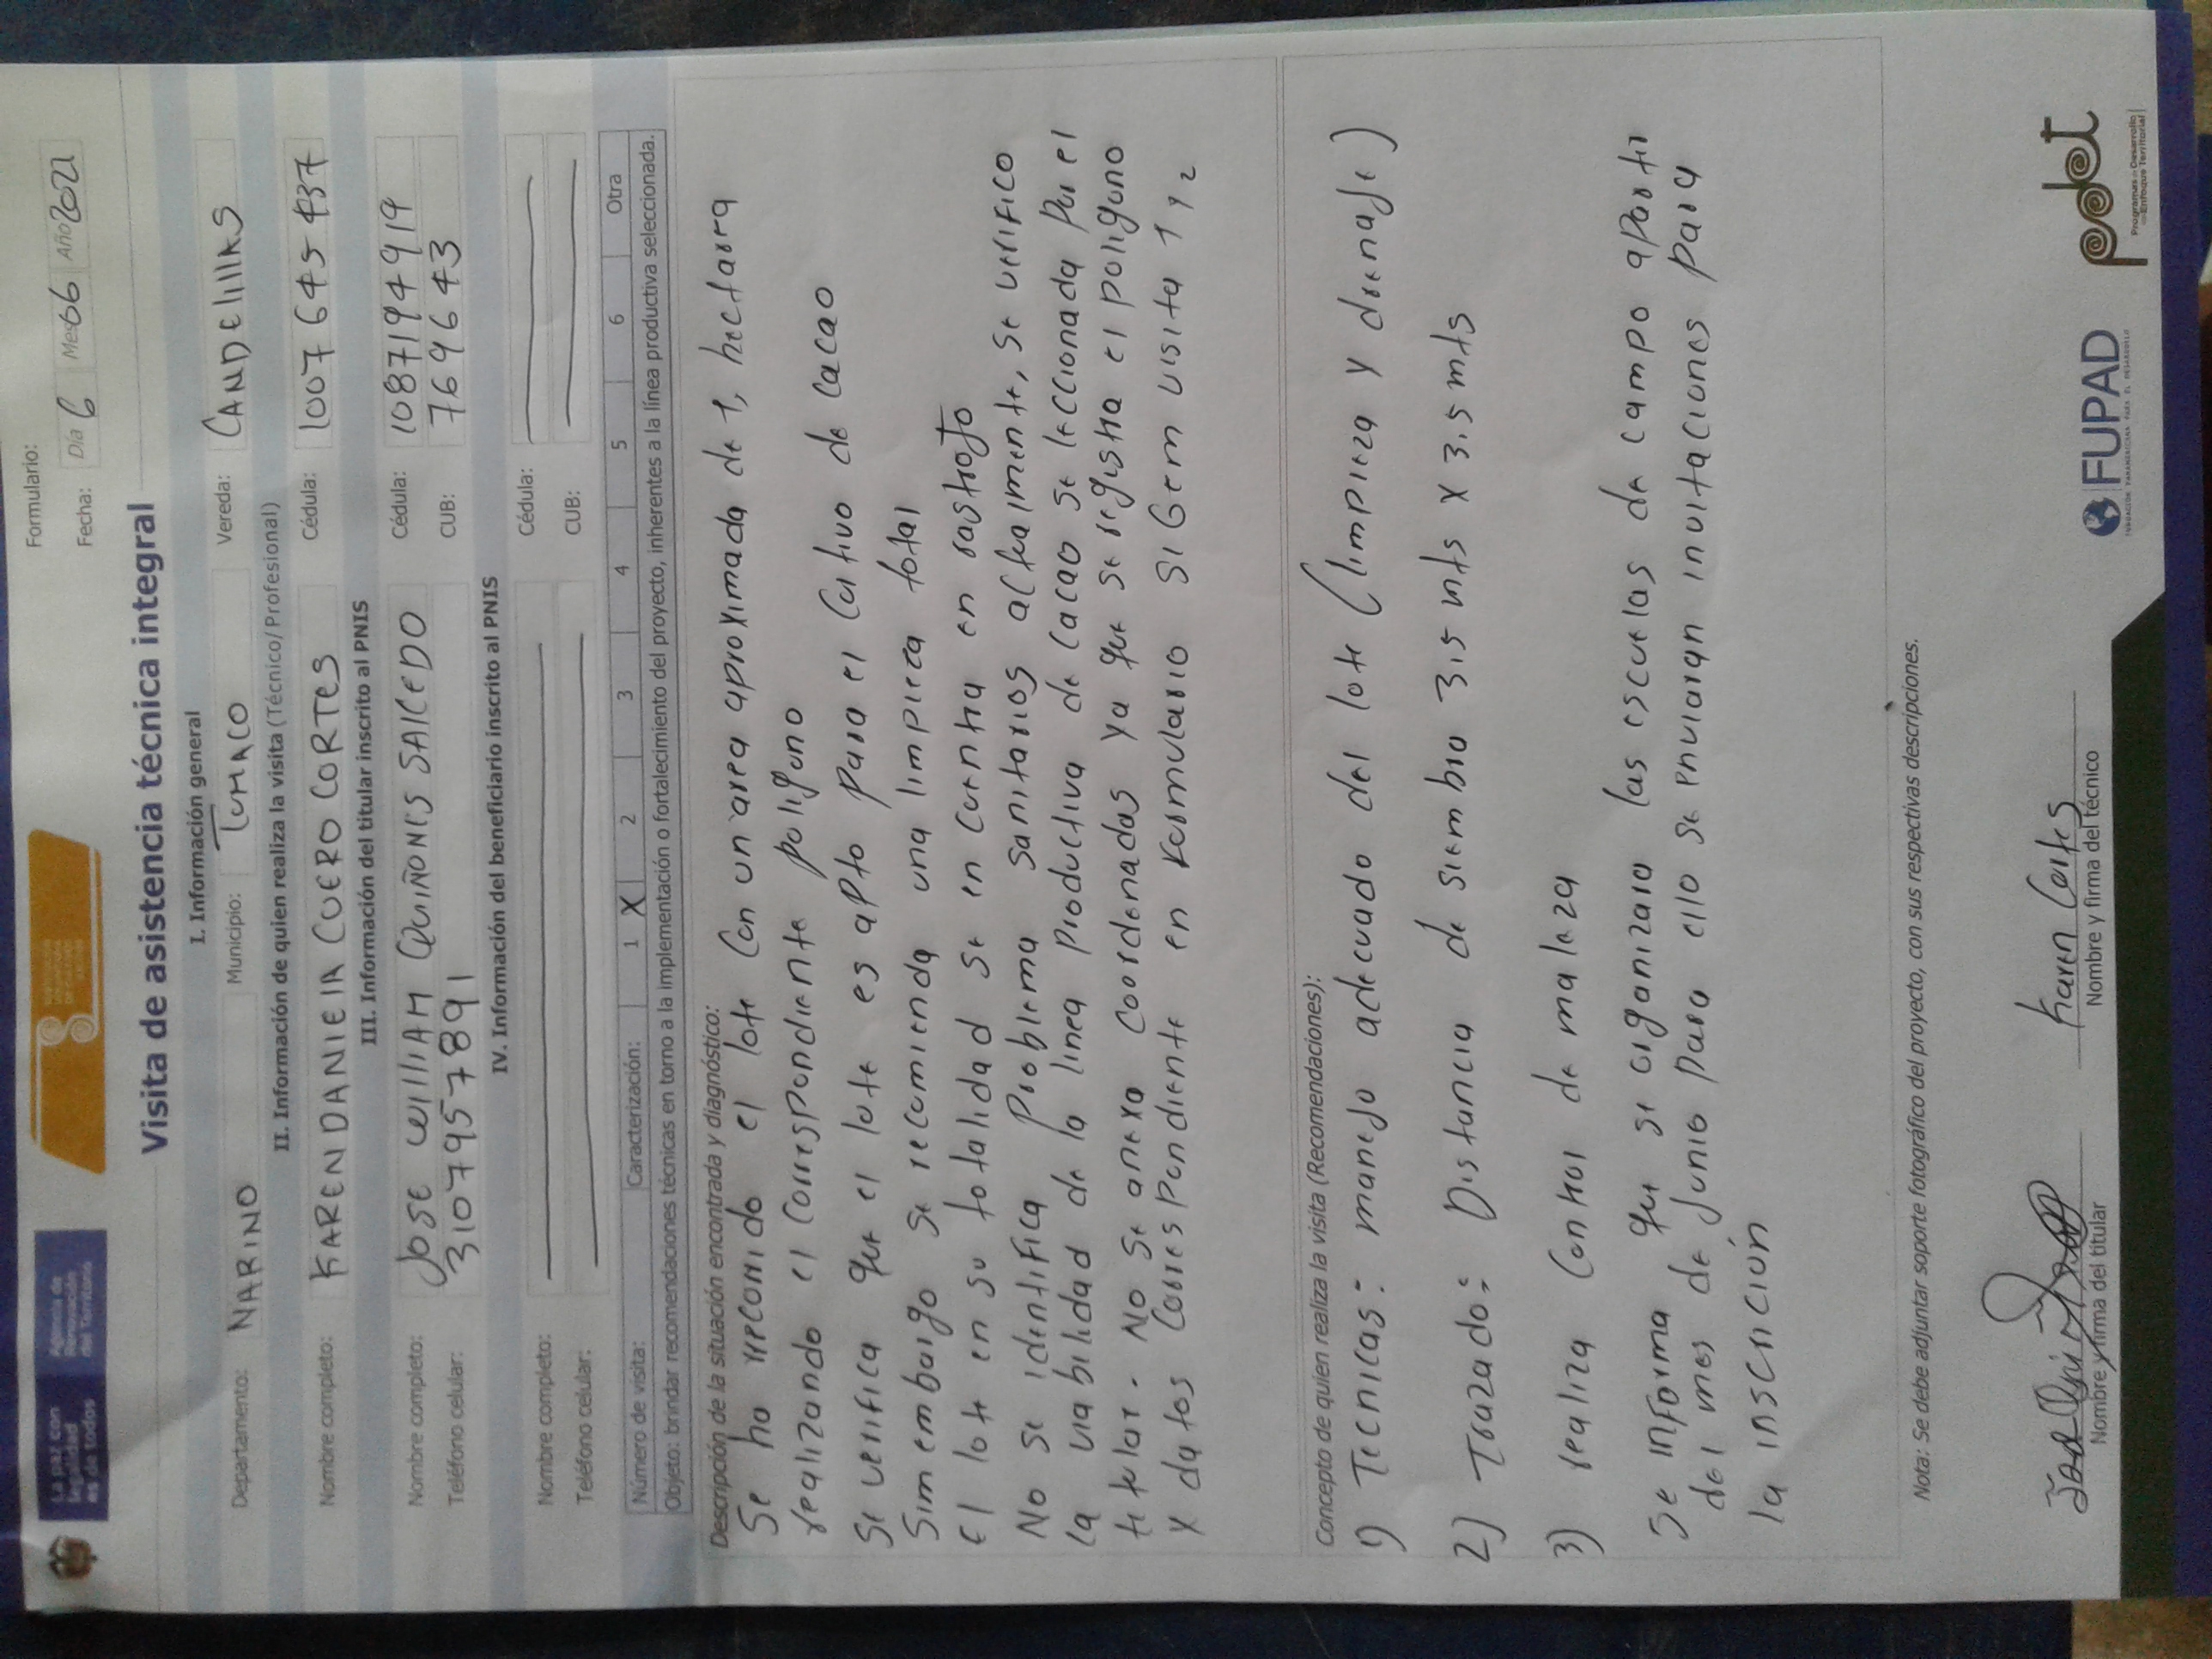 La paz con
legalidad
es de todos
Agencia de
Renovación
del Territorio
Formulario:
Fecha: Día 6 Mes 06 Año 2021
Visita de asistencia técnica integral
I. Información general
Departamento: NARINO Municipio: TUMACO Vereda: CANDElillAS
II. Información de quien realiza la visita (Técnico/Profesional)
Nombre completo: KARENDANIElA CUERO CORTES Cédula: 1007645437
III. Información del titular inscrito al PNIS
Nombre completo: JOSE WIlliAM QUIÑONES SAlCEDO Cédula: 1087194919
Teléfono celular: 3107957891 CUB: 769643
IV. Información del beneficiario inscrito al PNIS
Nombre completo: Cédula:
Teléfono celular: CUB:
Número de visita: Caracterización: 1 X 2 3 4 5 6 Otra
Objeto: brindar recomendaciones técnicas en torno a la implementación o fortalecimiento del proyecto, inherentes a la línea productiva seleccionada.
Descripción de la situación encontrada y diagnóstico:
Se ha recorrido el lote con un area aproximada de 1, hectarra
realizando el correspondiente poligono
Se verifica que el lote es apto para el cultivo de cacao
Sim embargo se recomienda una limpieza total
El lote en su totalidad se en cuentra en rastrojo
No se identifica Problema sanitarios actualmente, se verifico
la viabilidad de la linea productiva de cacao se leccionada por el
titular. No se anexa coordenadas ya que se registra el poligono
y datos correspondiente en formulario SIGem visita 1, 2
Concepto de quien realiza la visita (Recomendaciones):
1) Tecnicas: manejo adecuado del lote (limpieza y drenaje)
2) Trazado: Distancia de siembra 3.5 mts x 3.5 mts
3) realiza control de maleza
Se informa que se organizara las escuelas de campo apartir
del mes de Junio para ello se enviaran invitaciones para
la inscrición
Nota: Se debe adjuntar soporte fotográfico del proyecto, con sus respectivas descripciones.
Karen Cortes
Nombre y firma del titular Nombre y firma del técnico
FUPAD
FUNDACIÓN PANAMERICANA PARA EL DESARROLLO
pdet
Programas de Desarrollo
con Enfoque Territorial